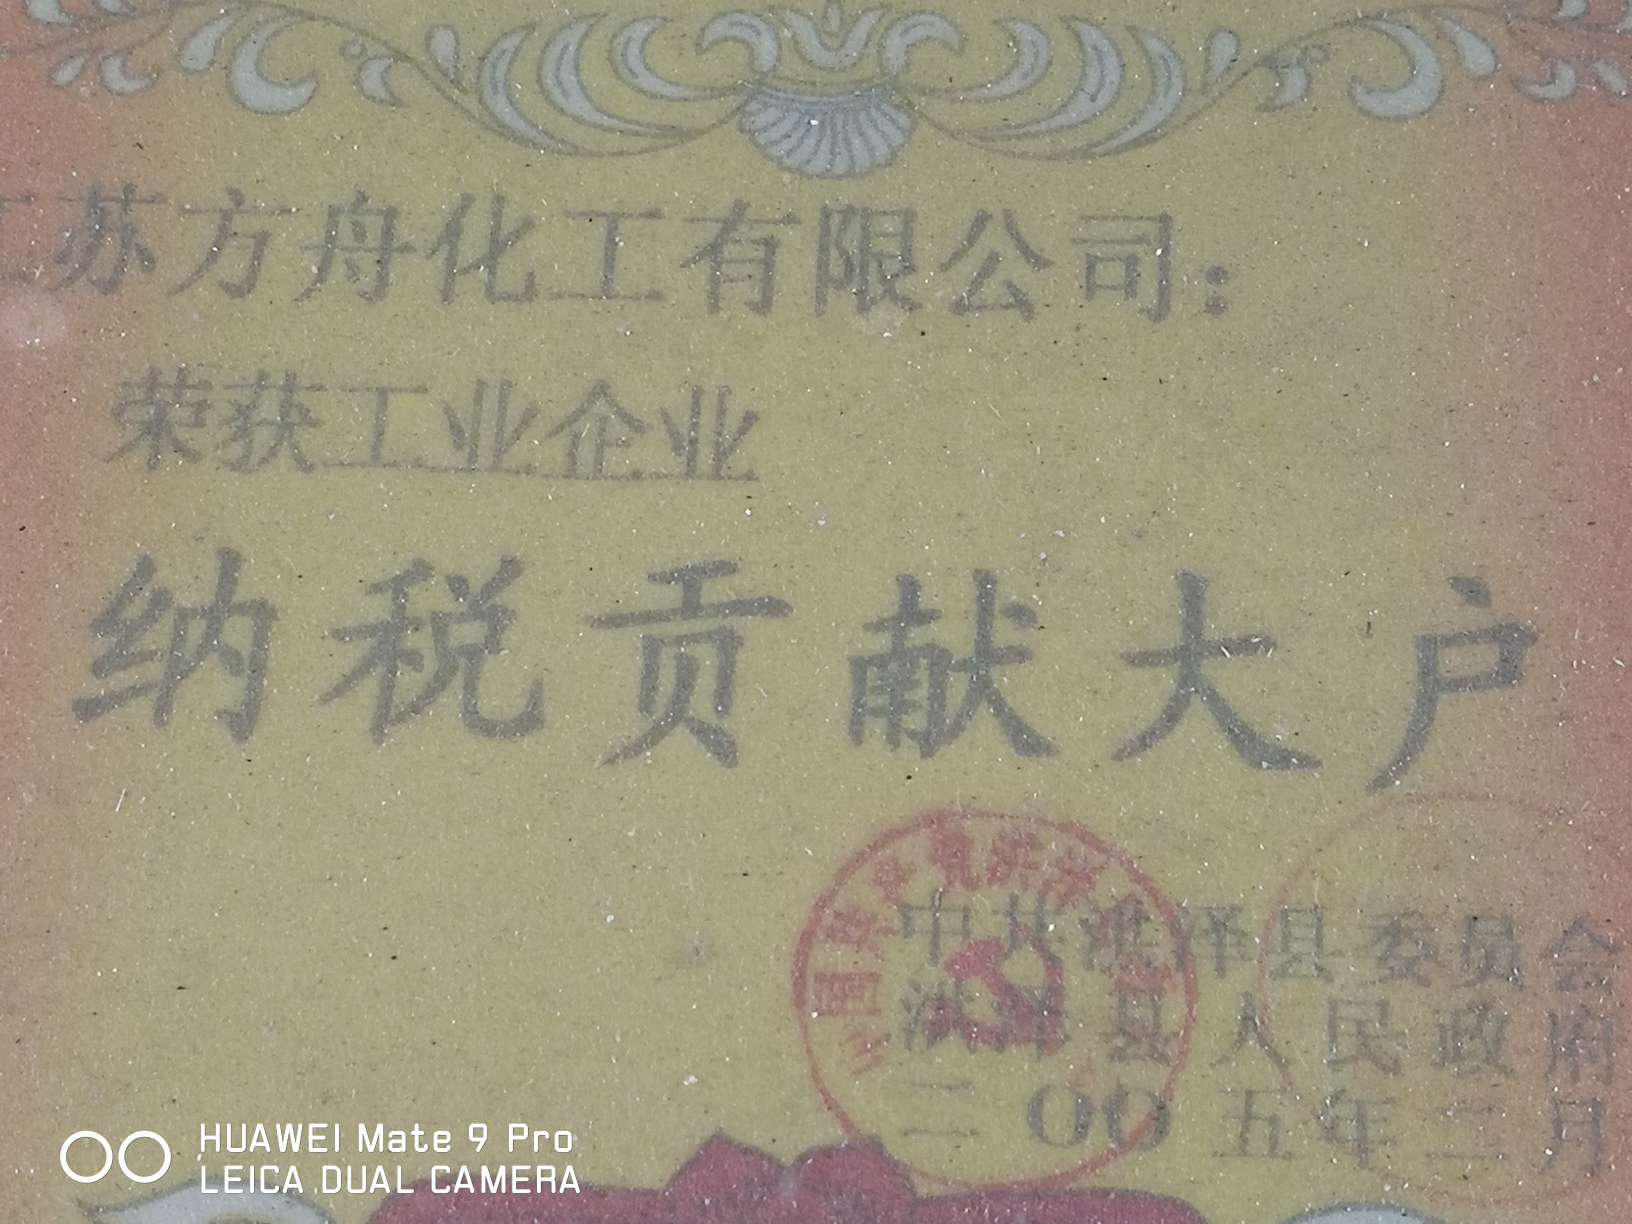 江苏方舟化工有限公司：
荣获工业企业
纳税贡献大户
中共洪泽县委员会
洪泽县人民政府
二〇〇五年二月
HUAWEI Mate 9 Pro
LEICA DUAL CAMERA